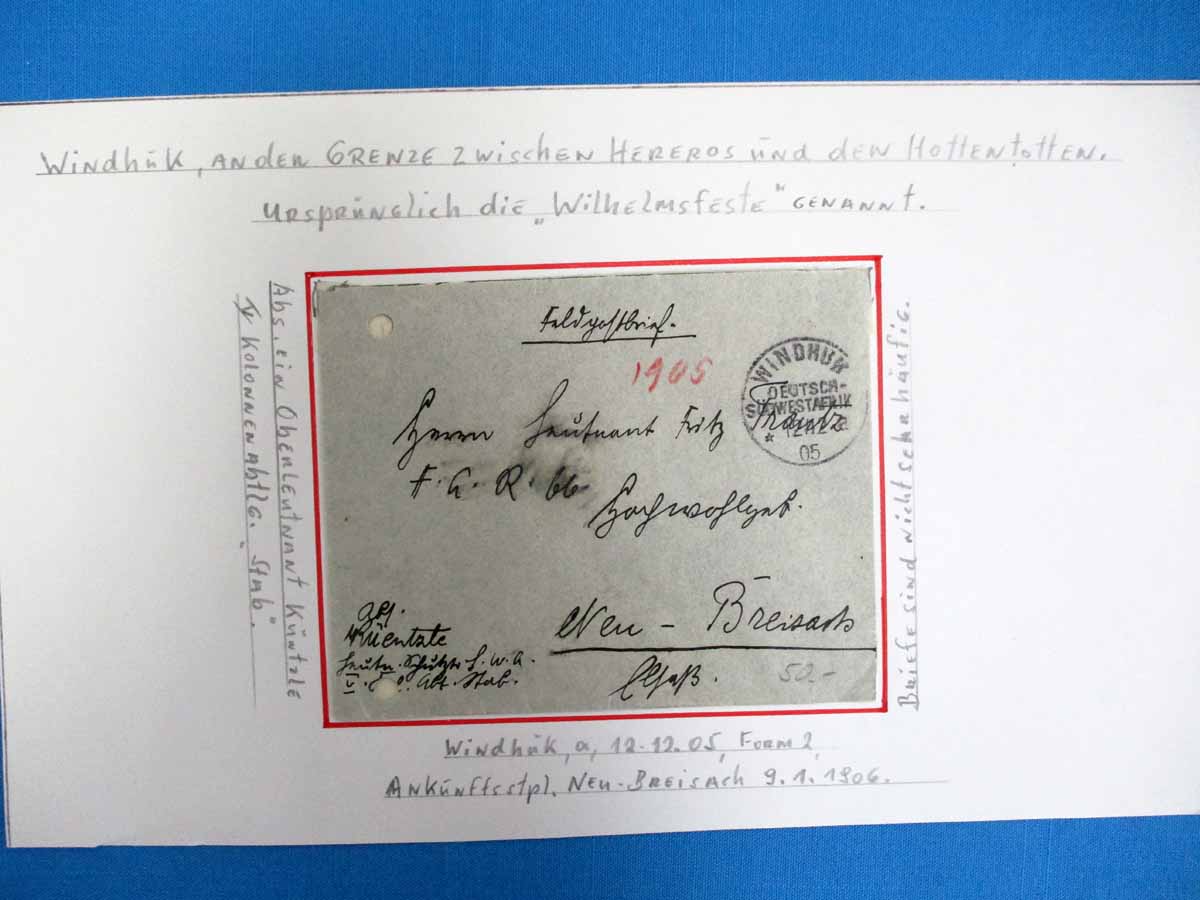 Windhük, an der Grenze zwischen Hereros und den Hottentotten.
Ursprünglich die „Wilhelmsfeste" genannt.
Abs. ein Oberleutnant Küntzle
Kolonnenabtlg. "Stab".
Feldpostbrief.
1905
WINDHUK
DEUTSCH-
SÜDWESTAFRIK
* 12.12. a
05
Herrn Leutnant Fritz
F. A. R. 66
Hochwohlgeb.
Neu-Breisach
Elsaß.
50.-
Abs.
Küentzle
Leutn. Schutztr. S. W. A.
Abt. Stab.
Briefe sind nicht sehr häufig.
Windhük, a, 12.12.05, Form 2,
Ankünftsstpl. Neu-Breisach 9.1.1906.